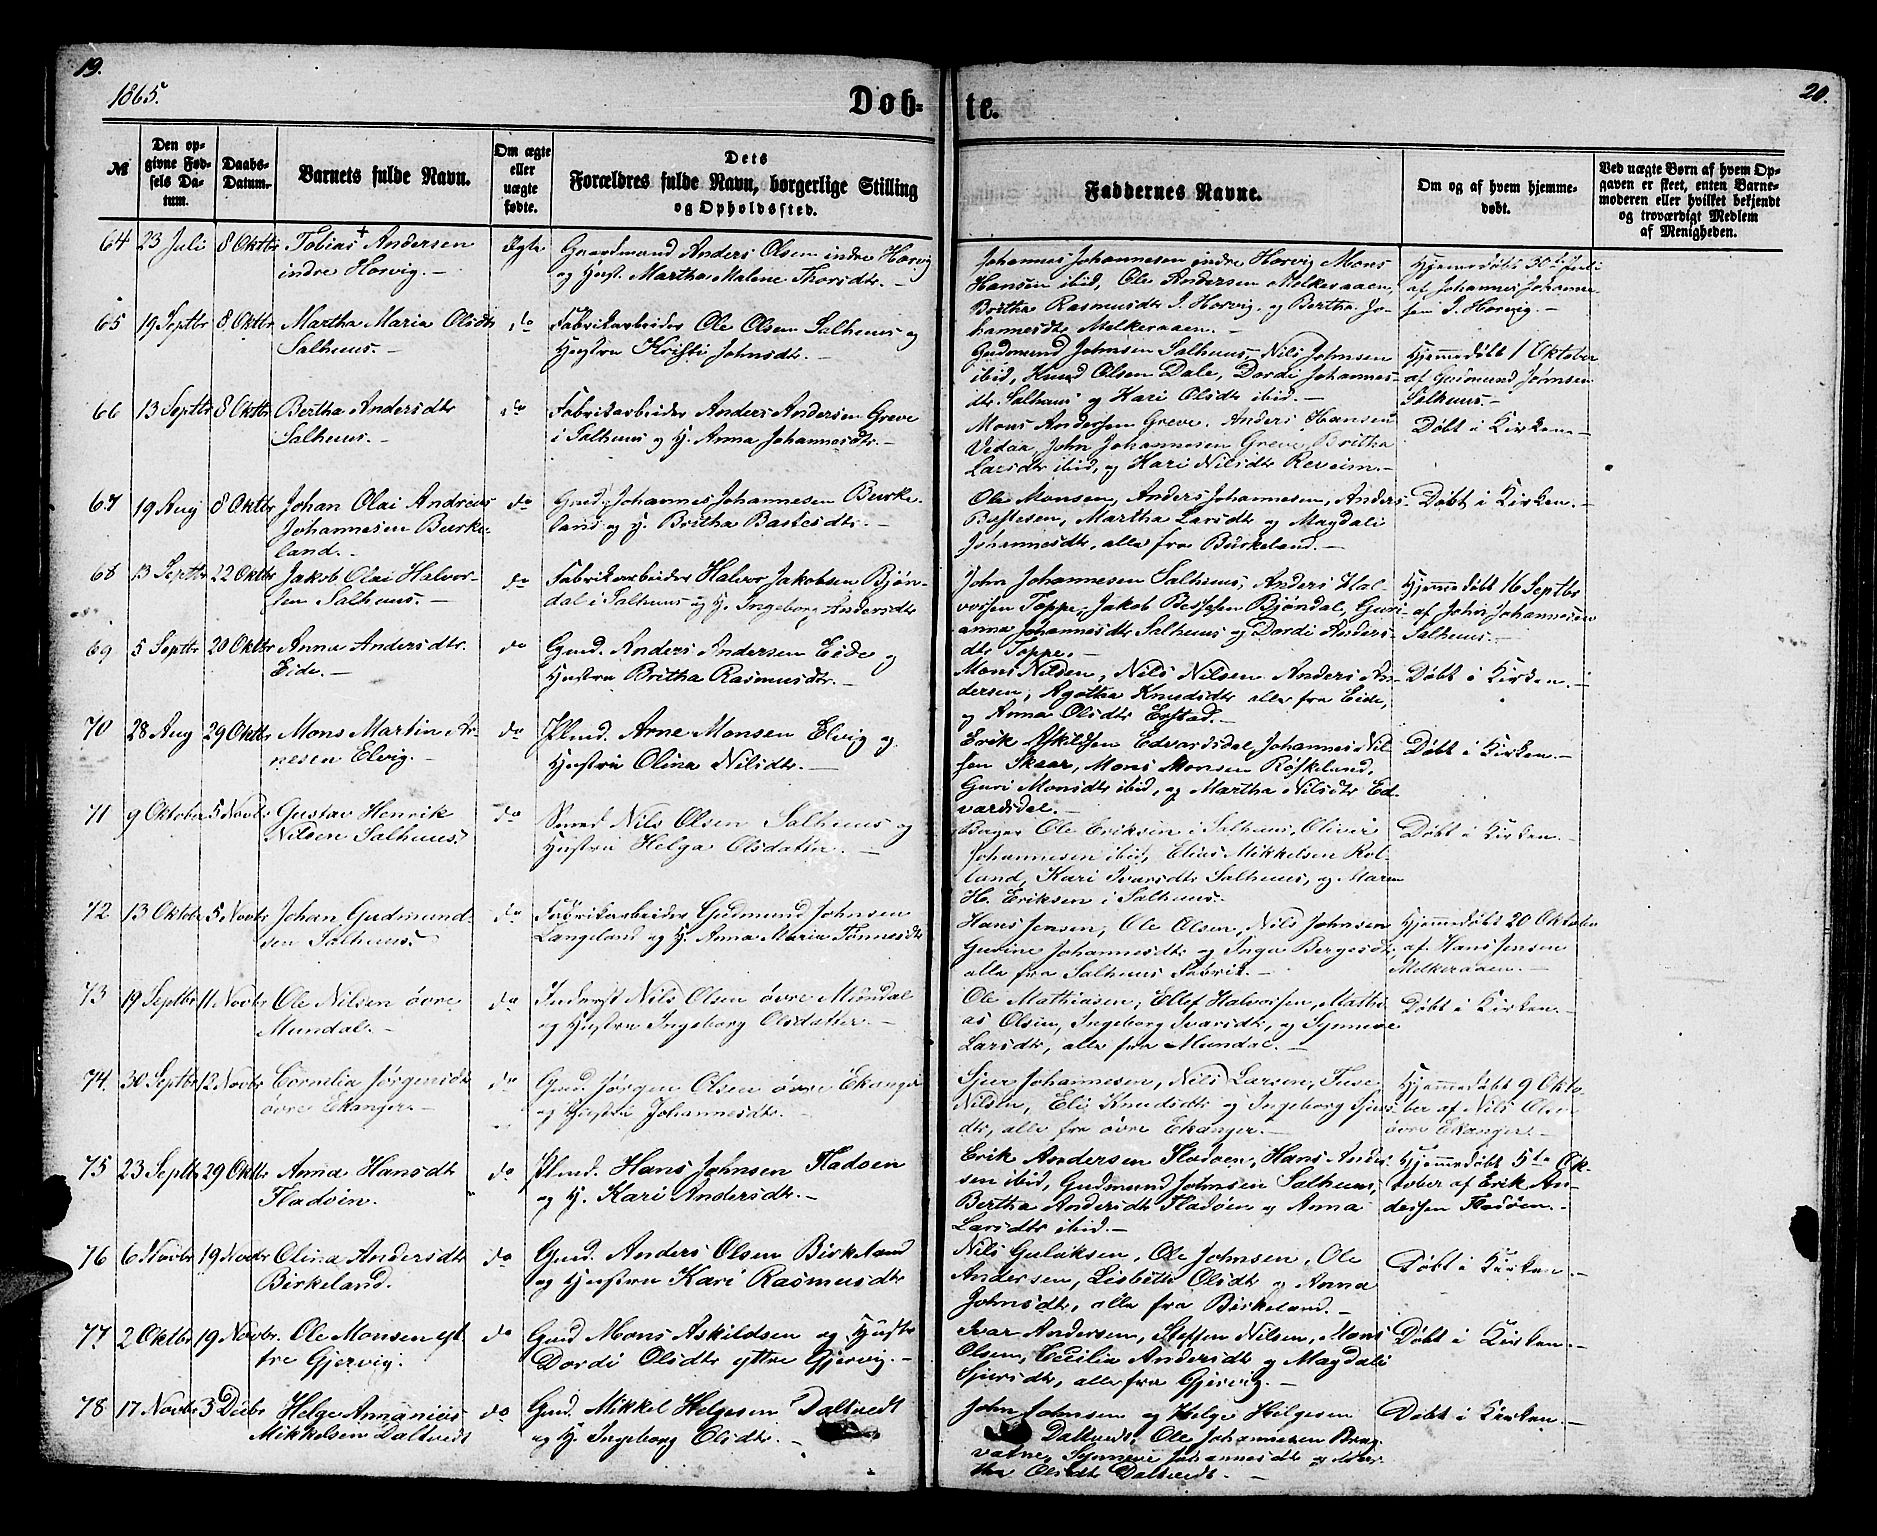 19.
1865.
Døb-
te.
20.
№
Den op-
givne Fød-
sels Da-
tum.
Daabs-
Datum.
Barnets fulde Navn.
Om ægte
eller
uægte
fødte.
Dets
Forældres fulde Navn, borgerlige Stilling
og Opholdssted.
Faddernes Navne.
Om og af hvem hjemme-
døbt.
Ved uægte Børn af hvem Op-
gaven er skeet, enten Barne-
moderen eller hvilket bekjendt
og troværdigt Medlem
af Menigheden.
64 23 Juli 8 Oktbr Tobias + Andersen
indre Horvig. –
Ægte
Gaardmand Anders Olsen indre Horvig
og Hust. Martha Malene Thorsdtr. –
Johannes Johannesen indre Horvig Mons
Hansen ibid, Ole Andersen Melkeraaen,
Britha Rasmusdtr I. Horvig, og Bertha Jo-
hannesdtr Melkeraaen. –
Hjemmedøbt 30te Juli
af Johannes Johanne-
sen I. Horvig. –
65 19 Septbr 8 Oktbr Martha Maria Olsdtr
Salhuus. –
do
Fabrikarbeider Ole Olsen Salhuus og
Hustru Kristi Johnsdtr. –
Gudmund Johnsen Salhuus, Nils Johnsen
ibid, Knud Olsen Dale, Dordi Johannes-
dtr Salhuus og Kari Olsdtr ibid. –
Hjemmedøbt 1 Oktober
af Gudmund Johnsen
Salhuus. –
66 13 Septbr 8 Oktbr Bertha Andersdtr
Salhuus. –
do
Fabrikarbeider Anders Andersen Greve
i Salhuus og H. Anna Johannesdtr. –
Mons Andersen Greve, Anders Hansen
Vedaa, John Johannesen Greve, Britha
Larsdtr ibid, og Kari Nilsdtr Reveim. –
Døbt i Kirken. –
67 19 Aug 8 Oktbr Johan Olai Andreas
Johannesen Burke-
land. –
do
Gmd. Johannes Johannesen Burke-
land og H. Britha Bastesdtr. –
Ole Monsen, Anders Johannesen, Anders
Bastesen, Martha Larsdtr og Magdali
Johannesdtr, alle fra Burkeland. –
Døbt i Kirken. –
68 13 Septbr 22 Oktbr Jakob Olai Halvor-
sen Salhuus. –
do
Fabrikarbeider Halvor Jakobsen Bjøn-
dal i Salhuus og H. Ingeborg Andersdtr
John Johannesen Salhuus, Anders Hal-
vorsen Toppe, Jakob Bessesen Bjøndal, Guri-
anna Johannesdtr Salhuus og Dordi Anders-
dtr Toppe. –
Hjemmedøbt 16 Septbr
af John Johannesen
Salhuus. –
69 5 Septbr 20 Oktbr Anna Andersdtr.
Eide. –
do
Gmd. Anders Andersen Eide og
Hustru Britha Rasmusdtr. –
Mons Nilsen, Nils Nilsen Anders An-
dersen, Agotha Knudsdtr alle fra Eide,
og Anna Olsdtr Erstad. –
Døbt i Kirken. –
70 28 Aug 29 Oktbr Mons Martin Ar-
nesen Elvig. –
do
Plmd. Arne Monsen Elvig og
Hustru Olina Nilsdtr. –
Erik Askildsen Edvardsdal, Johannes Nil-
sen Skaar, Mons Monsen Røskeland,
Guri Monsdtr ibid, og Martha Nilsdtr Ed-
vardsdal. –
Døbt i Kirken. –
71 9 Oktober 5 Novbr Gustav Henrik
Nilsen Salhuus.
do
Smed Nils Olsen Salhuus og
Hustru Helga Olsdatter. –
Bager Ole Eriksen i Salhuus, Oliver
Johannesen ibid, Elias Mikkelsen Rol-
land, Kari Ivarsdtr Salhuus, og Maren
H. Eriksen i Salhuus.
Døbt i Kirken. –
72 13 Oktobr 5 Novbr Johan Gudmund-
sen Salhuus.
do
Fabrikarbeider Gudmund Johnsen
Langeland og H. Anna Maria Tønnesdtr
Hans Jensen, Ole Olsen, Nils Johnsen
Gurine Johannesdtr og Inga Bergesdtr,
alle fra Salhuus Fabrik. –
Hjemmedøbt 20 Oktober
af Hans Jensen
Melkeraaen. –
73 19 Septbr 11 Novbr Ole Nilsen øvre
Mundal. –
do
Inderst Nils Olsen øvre Mundal
og Hustru Ingeborg Olsdatter. –
Ole Mathiasen, Ellef Halvorsen, Mathi-
as Olsen, Ingeborg Ivarsdtr, og Synneve
Larsdtr, alle fra Mundal. –
Døbt i Kirken. –
74. 30 Septbr 12 Novbr Cornelia Jørgensdtr
øvre Ekanger. –
do
Gmd. Jørgen Olsen øvre Ekanger
og Hustru Johannesdtr. –
Sjur Johannesen, Nils Larsen,
Nilsen, Eli Knudsdtr og Ingeborg Sjurs-
dtr, alle fra øvre Ekanger. –
Hjemmedøbt 9 Okto-
ber af Nils Olsen
øvre Ekanger. –
75 23 Septbr 29 Oktbr Anna Hansdtr
Fladøen.
do
Plmd. Hans Johnsen Fladøen
og H. Kari Andersdtr. –
Erik Andersen Fladøen, Hans Ander-
sen ibid, Gudmund Johnsen Salhuus,
Bertha Andersdtr Fladøen og Anna
Larsdtr ibid. –
Hjemmedøbt 5te Ok-
tober af Erik An-
dersen Fladøen. –
76 6 Novbr 19 Novbr Olina Andersdtr
Birkeland.
do
Gmd. Anders Olsen Birkeland
og Hustru Kari Rasmusdtr
Nils Gulaksen, Ole Johnsen, Ole
Andersen, Lisbeth Olsdtr og Anna
Johnsdtr, alle fra Birkeland. –
Døbt i Kirken. –
77 2 Oktbr 19 Novbr. Ole Monsen yt-
tre Gjervig.
do
Gmd Mons Askildsen og Hustr
Dordi Olsdtr yttre Gjervig. –
Ivar Andersen, Steffen Nilsen, Mons
Olsen, Cecilia Andersdtr og Magdali
Sjursdtr, alle fra Gjervig. –
Døbt i Kirken. –
78 17 Novbr 3 Decbr Helge Annanias
Mikkelsen Daltvedt
do
Gmd. Mikkel Helgesen Daltvedt
og H. Ingeborg Olsdtr. –
John Johnsen og Helge Helgesen
Daltvedt, Ole Johannesen Brag-
vatne, Synneve Johannesdtr og Mar-
tha Olsdtr Daltvedt. –
Døbt i Kirken. –